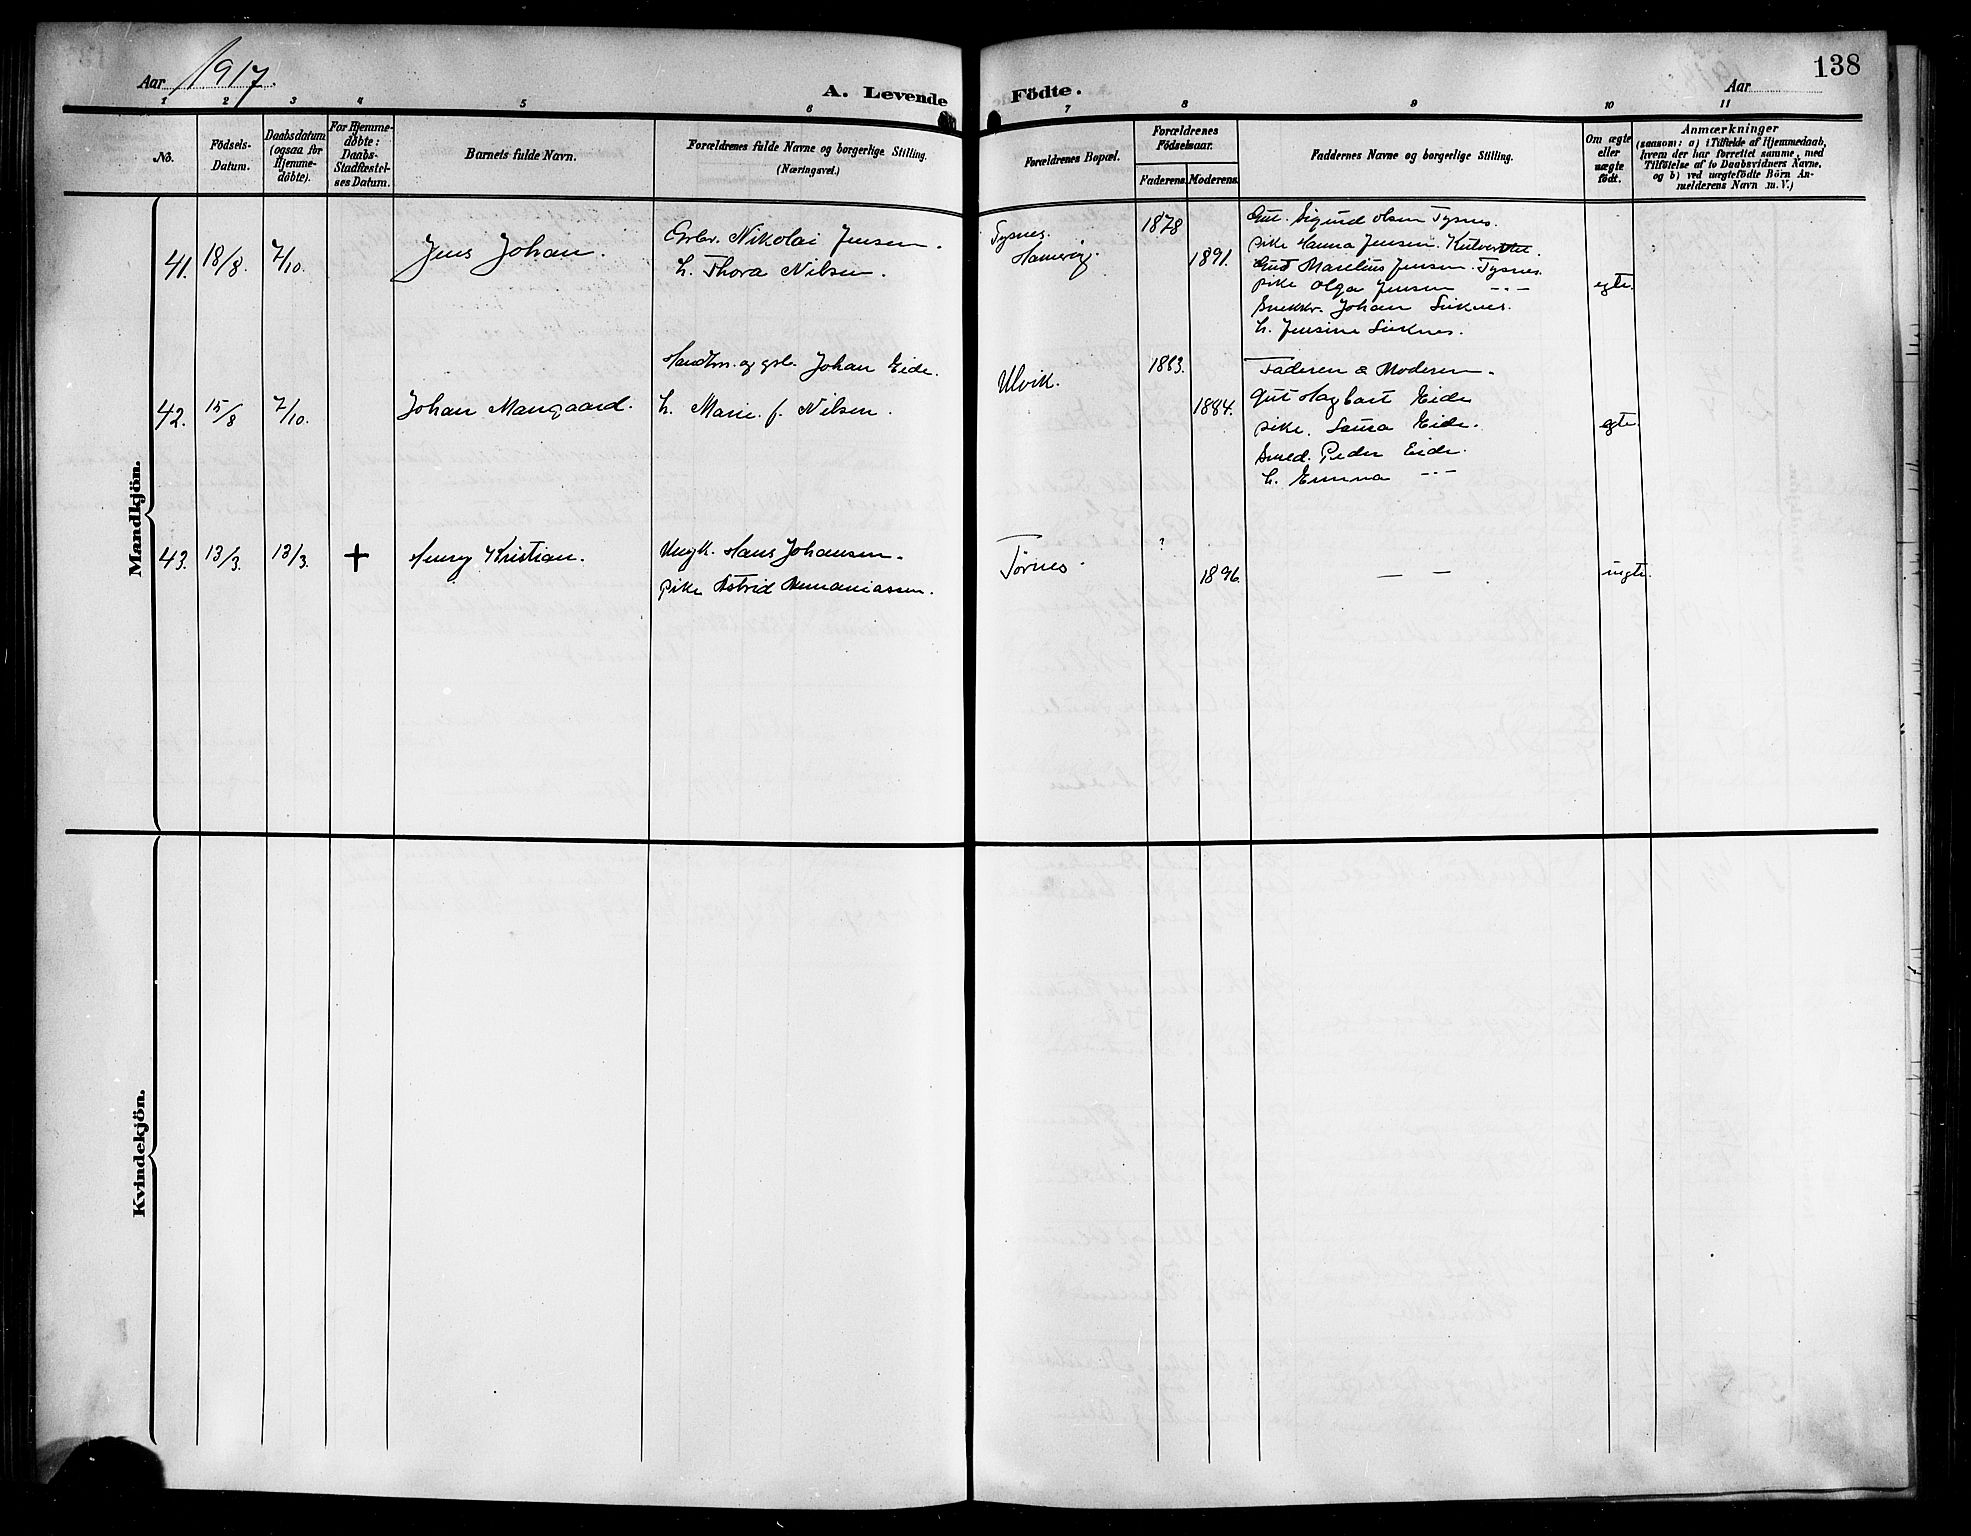 138
Aar 1917.
A. Levende Födte.
Aar
1 2 3 4 5 6 7 8 9 10 11
No.
Födsels-
Datum.
Daabsdatum
(ogsaa for
Hjemme-
döbte).
For Hjemme-
döbte:
Daabs-
Stadfæstel-
ses Datum.
Barnets fulde Navn.
Forældrenes fulde Navne og borgerlige Stilling.
(Næringsvei.)
Forældrenes Bopæl.
Forældrenes
Födselsaar.
Faderens.
Moderens.
Faddernes Navne og borgerlige Stilling.
Om ægte
eller
uægte
født.
Anmærkninger
(saasom: a) i Tilfælde af Hjemmedaab,
hvem der har forrettet samme, med
Tilföielse af to Daabsvidners Navne,
og b) ved uægtefödte Börn An-
melderens Navn m. V.)
Mandkjön.
41. 18/8. 7/10. Jens Johan.
Nikolai Jensen.
h. Thora Nilsen.
Tysnes.
1878
1891.
Gut. Sigurd Olsen Tysnes.
pike Hanna Jensen.
Gut Marelius Jensen. Tysnes.
pike Olga Jensen - - -
Johan
h. Jensine
egte.
42. 15/8 7/10. Johan Mangaard.
Johan Eide.
h. Marie f. Nilsen.
Ulvik.
1883.
1884.
Faderen & Moderen.
Gut Hagbart Eide
pike. Laura Eide.
Smed. Peder Eide.
h. Emma - - -
egte.
43. 13/3. 13/3. + Henry Kristian.
Ungk. Hans Johansen.
pike Astrid Ananiassen.
Tørnes.
?
1896.
— —
uegte.
Kvindekjön.